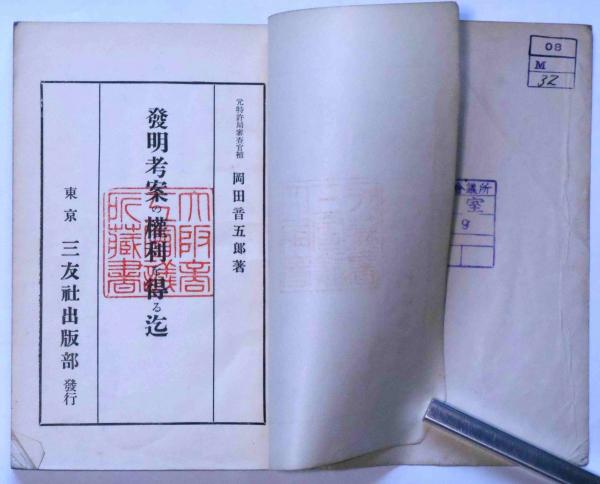 08
M
32
議所
室
9
元特許局審査官補 岡田音五郎著
發明考案の權利を得る迄
大阪商
工會議
所藏書
東京 三友社出版部 發行